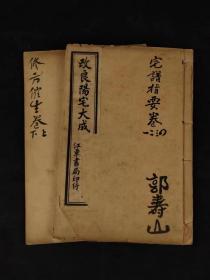 宅譜指要卷一二三四
郭壽山
改良陽宅大成
江東書局印行
修方催生卷上下